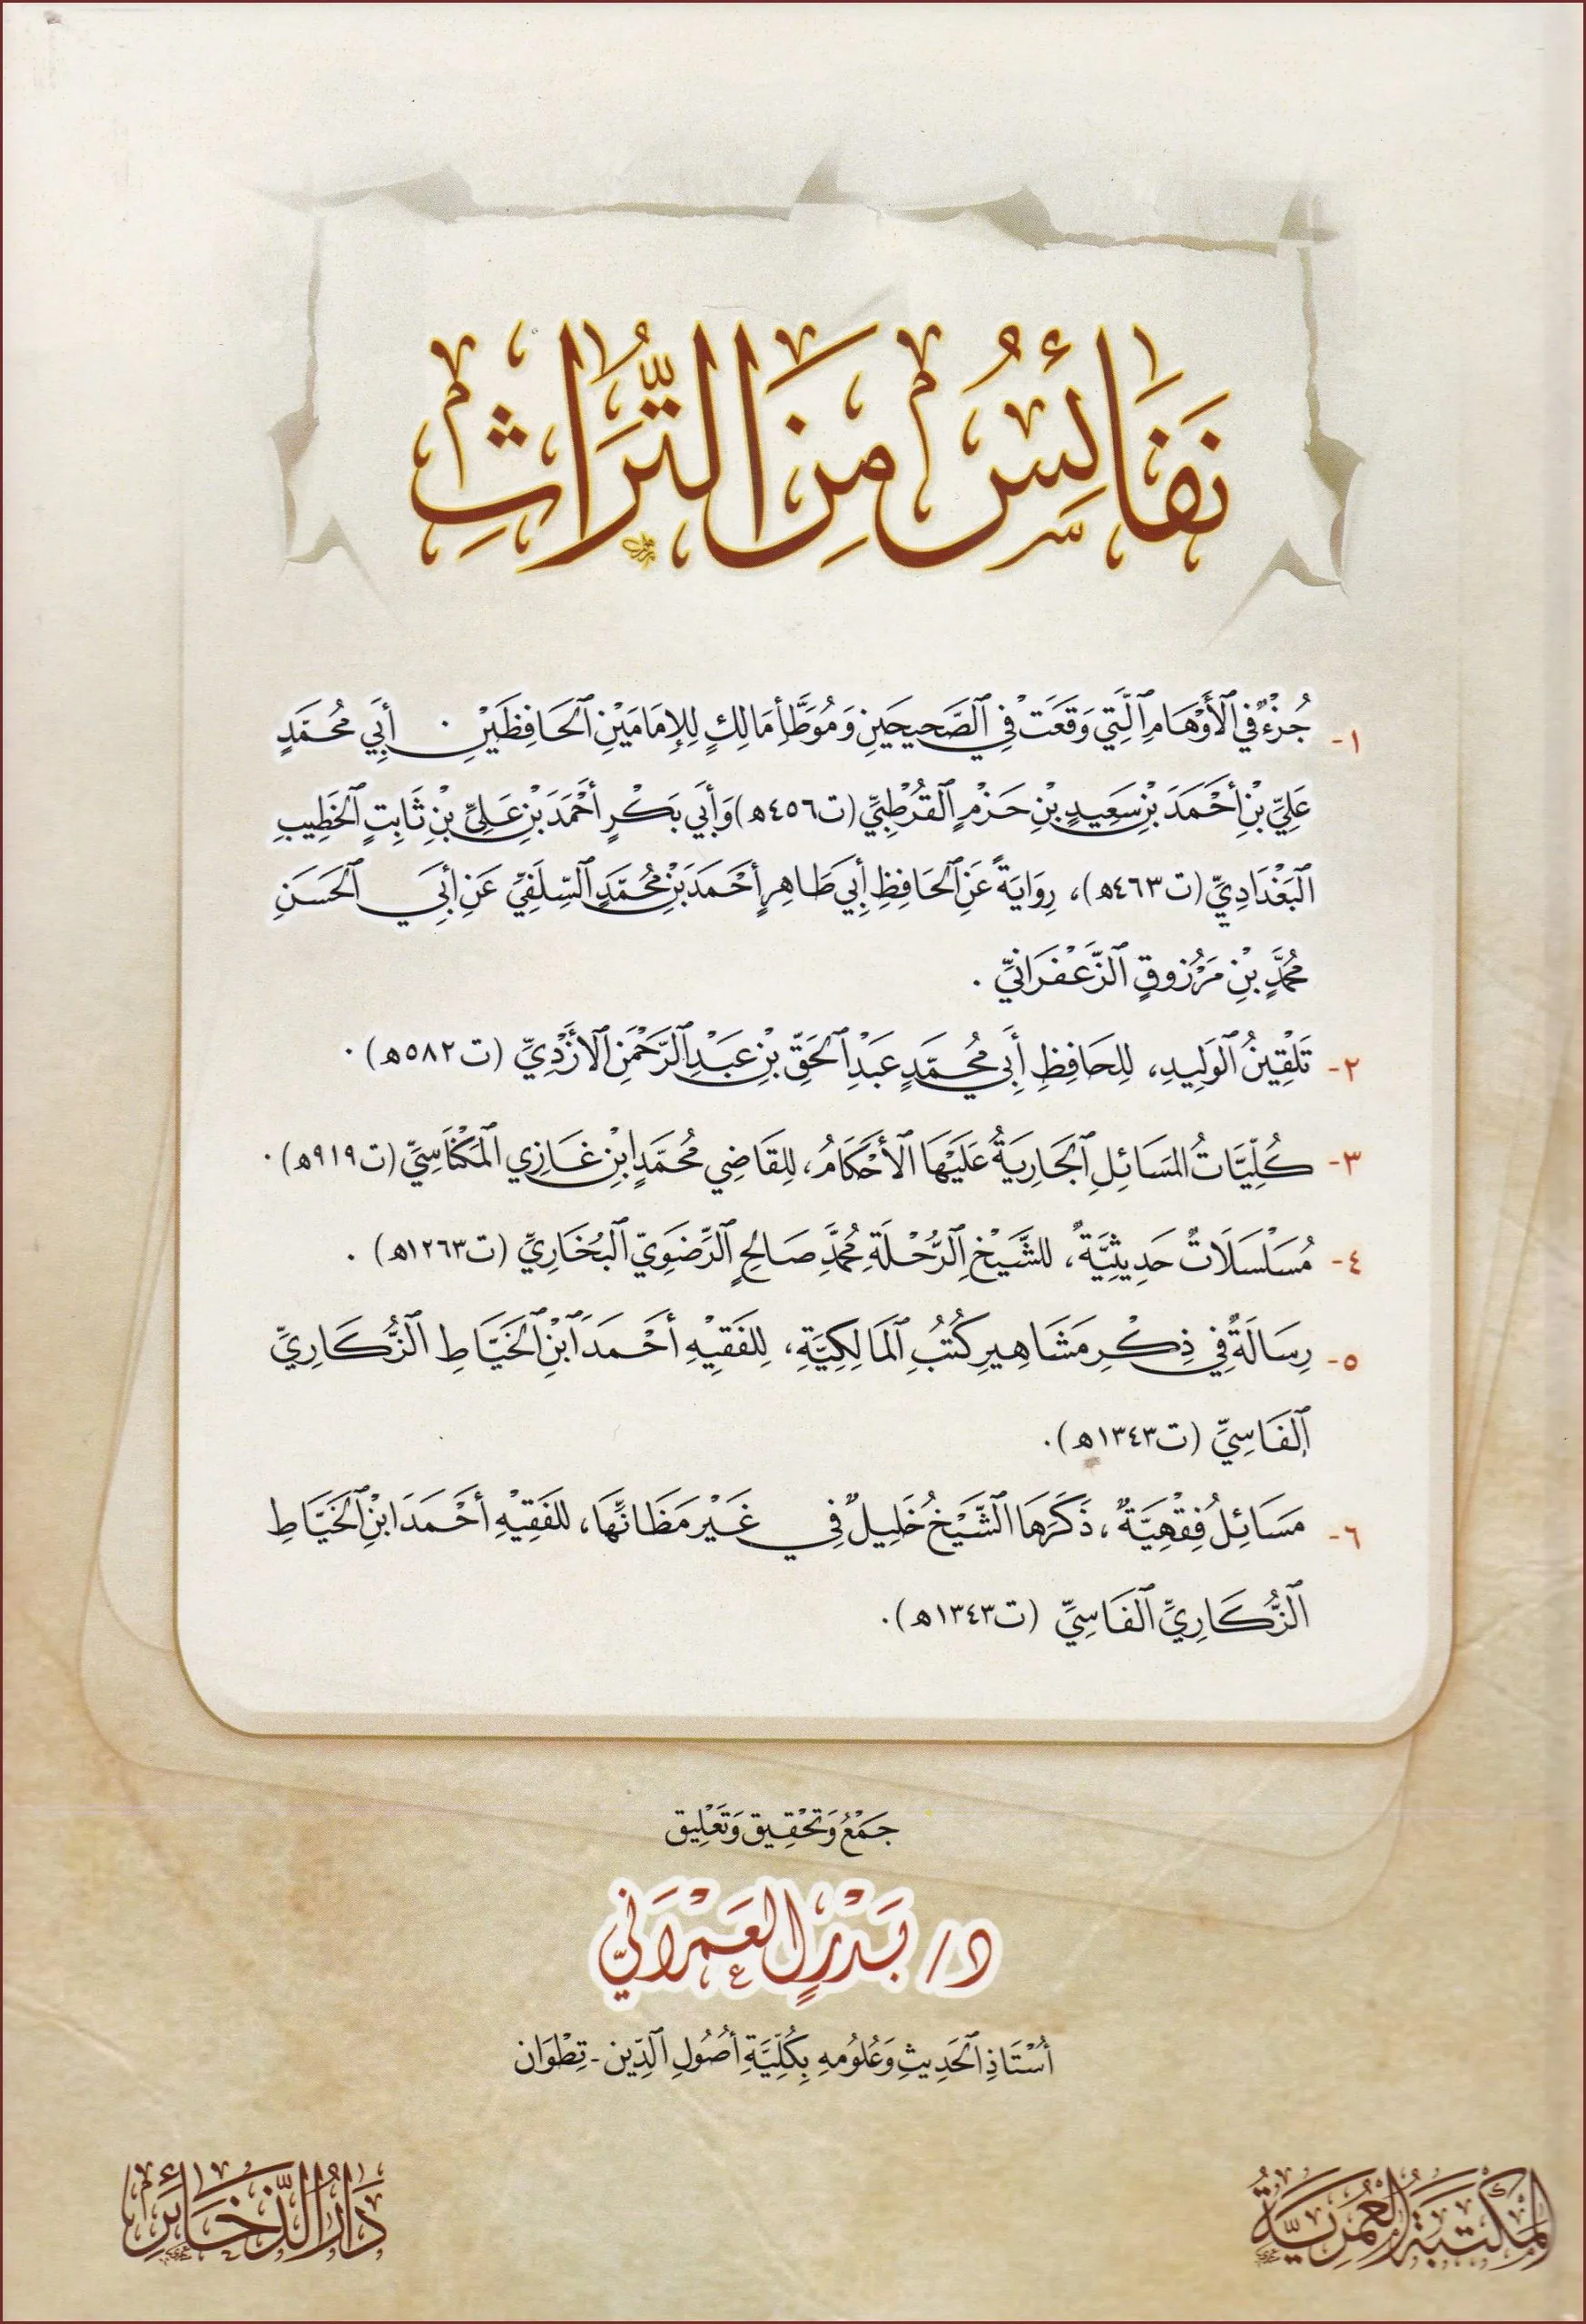 نَفَائِسُ مِنَ التُّرَاثِ
١- جُزْءٌ فِي الْأَوْهَامِ الَّتِي وَقَعَتْ فِي الصَّحِيحَيْنِ وَمُوَطَّأِ مَالِكٍ لِلْإِمَامَيْنِ الْحَافِظَيْنِ . أَبِي مُحَمَّدٍ
عَلِيِّ بْنِ أَحْمَدَ بْنِ سَعِيدٍ بْنِ حَزْمٍ الْقُرْطُبِيِّ (ت٤٥٦ه) وَأَبِي بَكْرٍ أَحْمَدَ بْنِ عَلِيِّ بْنِ ثَابِتٍ الْخَطِيبِ
الْبَغْدَادِيِّ (ت٤٦٣ه)، رِوَايَةً عَنِ الْحَافِظِ أَبِي طَاهِرٍ أَحْمَدَ بْنِ مُحَمَّدٍ السِّلَفِيِّ عَنِ أَبِي الْحَسَنِ
مُحَمَّدِ بْنِ مَرْزُوقٍ الزَّعْفَرَانِيِّ .
٢- تَلْقِينُ الْوَلِيدِ، لِلْحَافِظِ أَبِي مُحَمَّدٍ عَبْدِ الْحَقِّ بْنِ عَبْدِ الرَّحْمَنِ الْأَزْدِيِّ (ت٥٨٢ه) .
٣- كُلِّيَّاتُ الْمَسَائِلِ الْجَارِيَةُ عَلَيْهَا الْأَحْكَامُ، لِلْقَاضِي مُحَمَّدِ ابْنِ غَازِي الْمَكْنَاسِيِّ (ت٩١٩ه) .
٤- مُسَلْسَلَاتٌ حَدِيثِيَّةٌ، للشَّيْخِ الرُّحْلَةِ مُحَمَّدِ صَالِحٍ الرَّضَوِيِّ الْبُخَارِيِّ (ت١٢٦٣ه) .
٥- رِسَالَةٌ فِي ذِكْرِ مَشَاهِيرِ كُتُبُ الْمَالِكِيَّةِ، لِلْفَقِيْهِ أَحْمَدَ ابْنِ الْخَيَّاطِ الزُّكَارِيِّ
الْفَاسِيِّ (ت١٣٤٣ه).
٦- مَسَائِلُ فِقْهِيَّةٌ، ذَكَرَهَا الشَّيْخُ خَلِيلٌ فِي غَيْرِ مَظَانِّهَا، لِلْفَقِيْهِ أَحْمَدَ ابْنِ الْخَيَّاطِ
الزُّكَارِيِّ الْفَاسِيِّ (ت١٣٤٣ه).
جَمْعُ وَتَحْقِيق وَتَعْلِيق
د/ بَدْرٍ الْعَمْرَانِيِّ
أُسْتَاذِ الْحَدِيثِ وَعُلُومِهِ بِكُلِّيَّةِ أُصُولِ الدِّين - تِطْوَان
الْمَكْتَبَةُ الْعُمَرِيَّةُ
دَارُ الذَّخَائِرِ